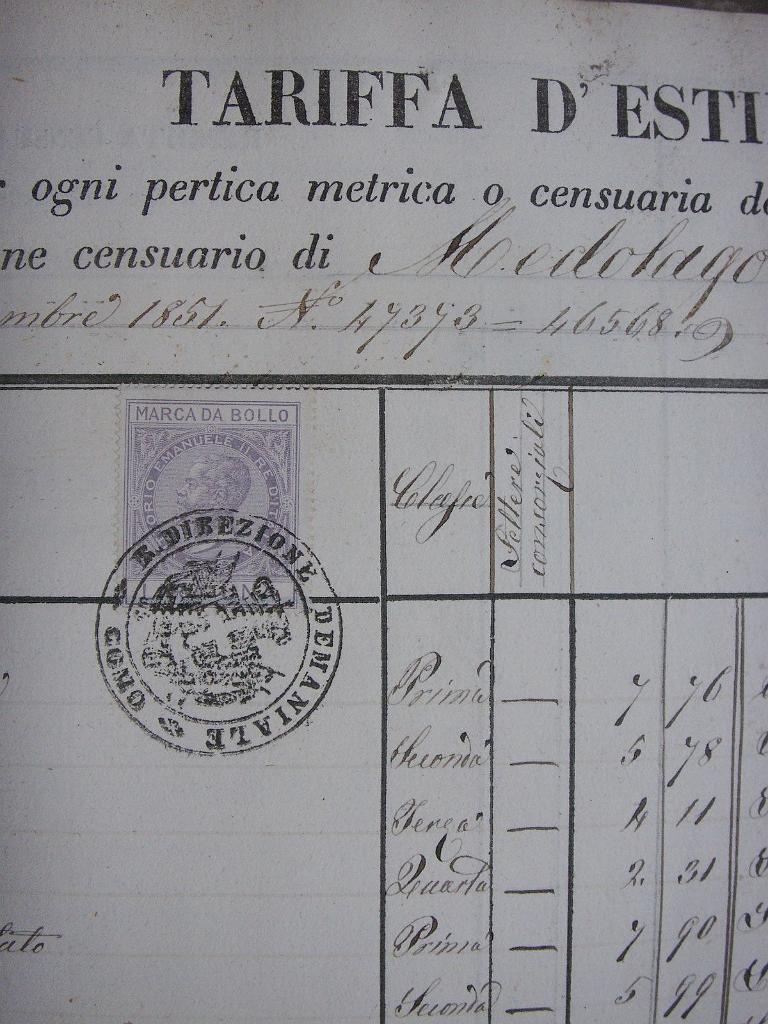 TARIFFA D'ESTI
r ogni pertica metrica o censuaria de
ne censuario di Medolago
mbre 1851. No. 47373 = 46568.
MARCA DA BOLLO
ORIO EMANUELE II RE D'IT
R. DIREZIONE DEMANIALE
COMO
Classe
Lettere consorziali
Prima — 7 76
Seconda — 5 78
Terza — 4 11
Quarta — 2. 31
ato Prima — 7 90
Seconda — 5 99